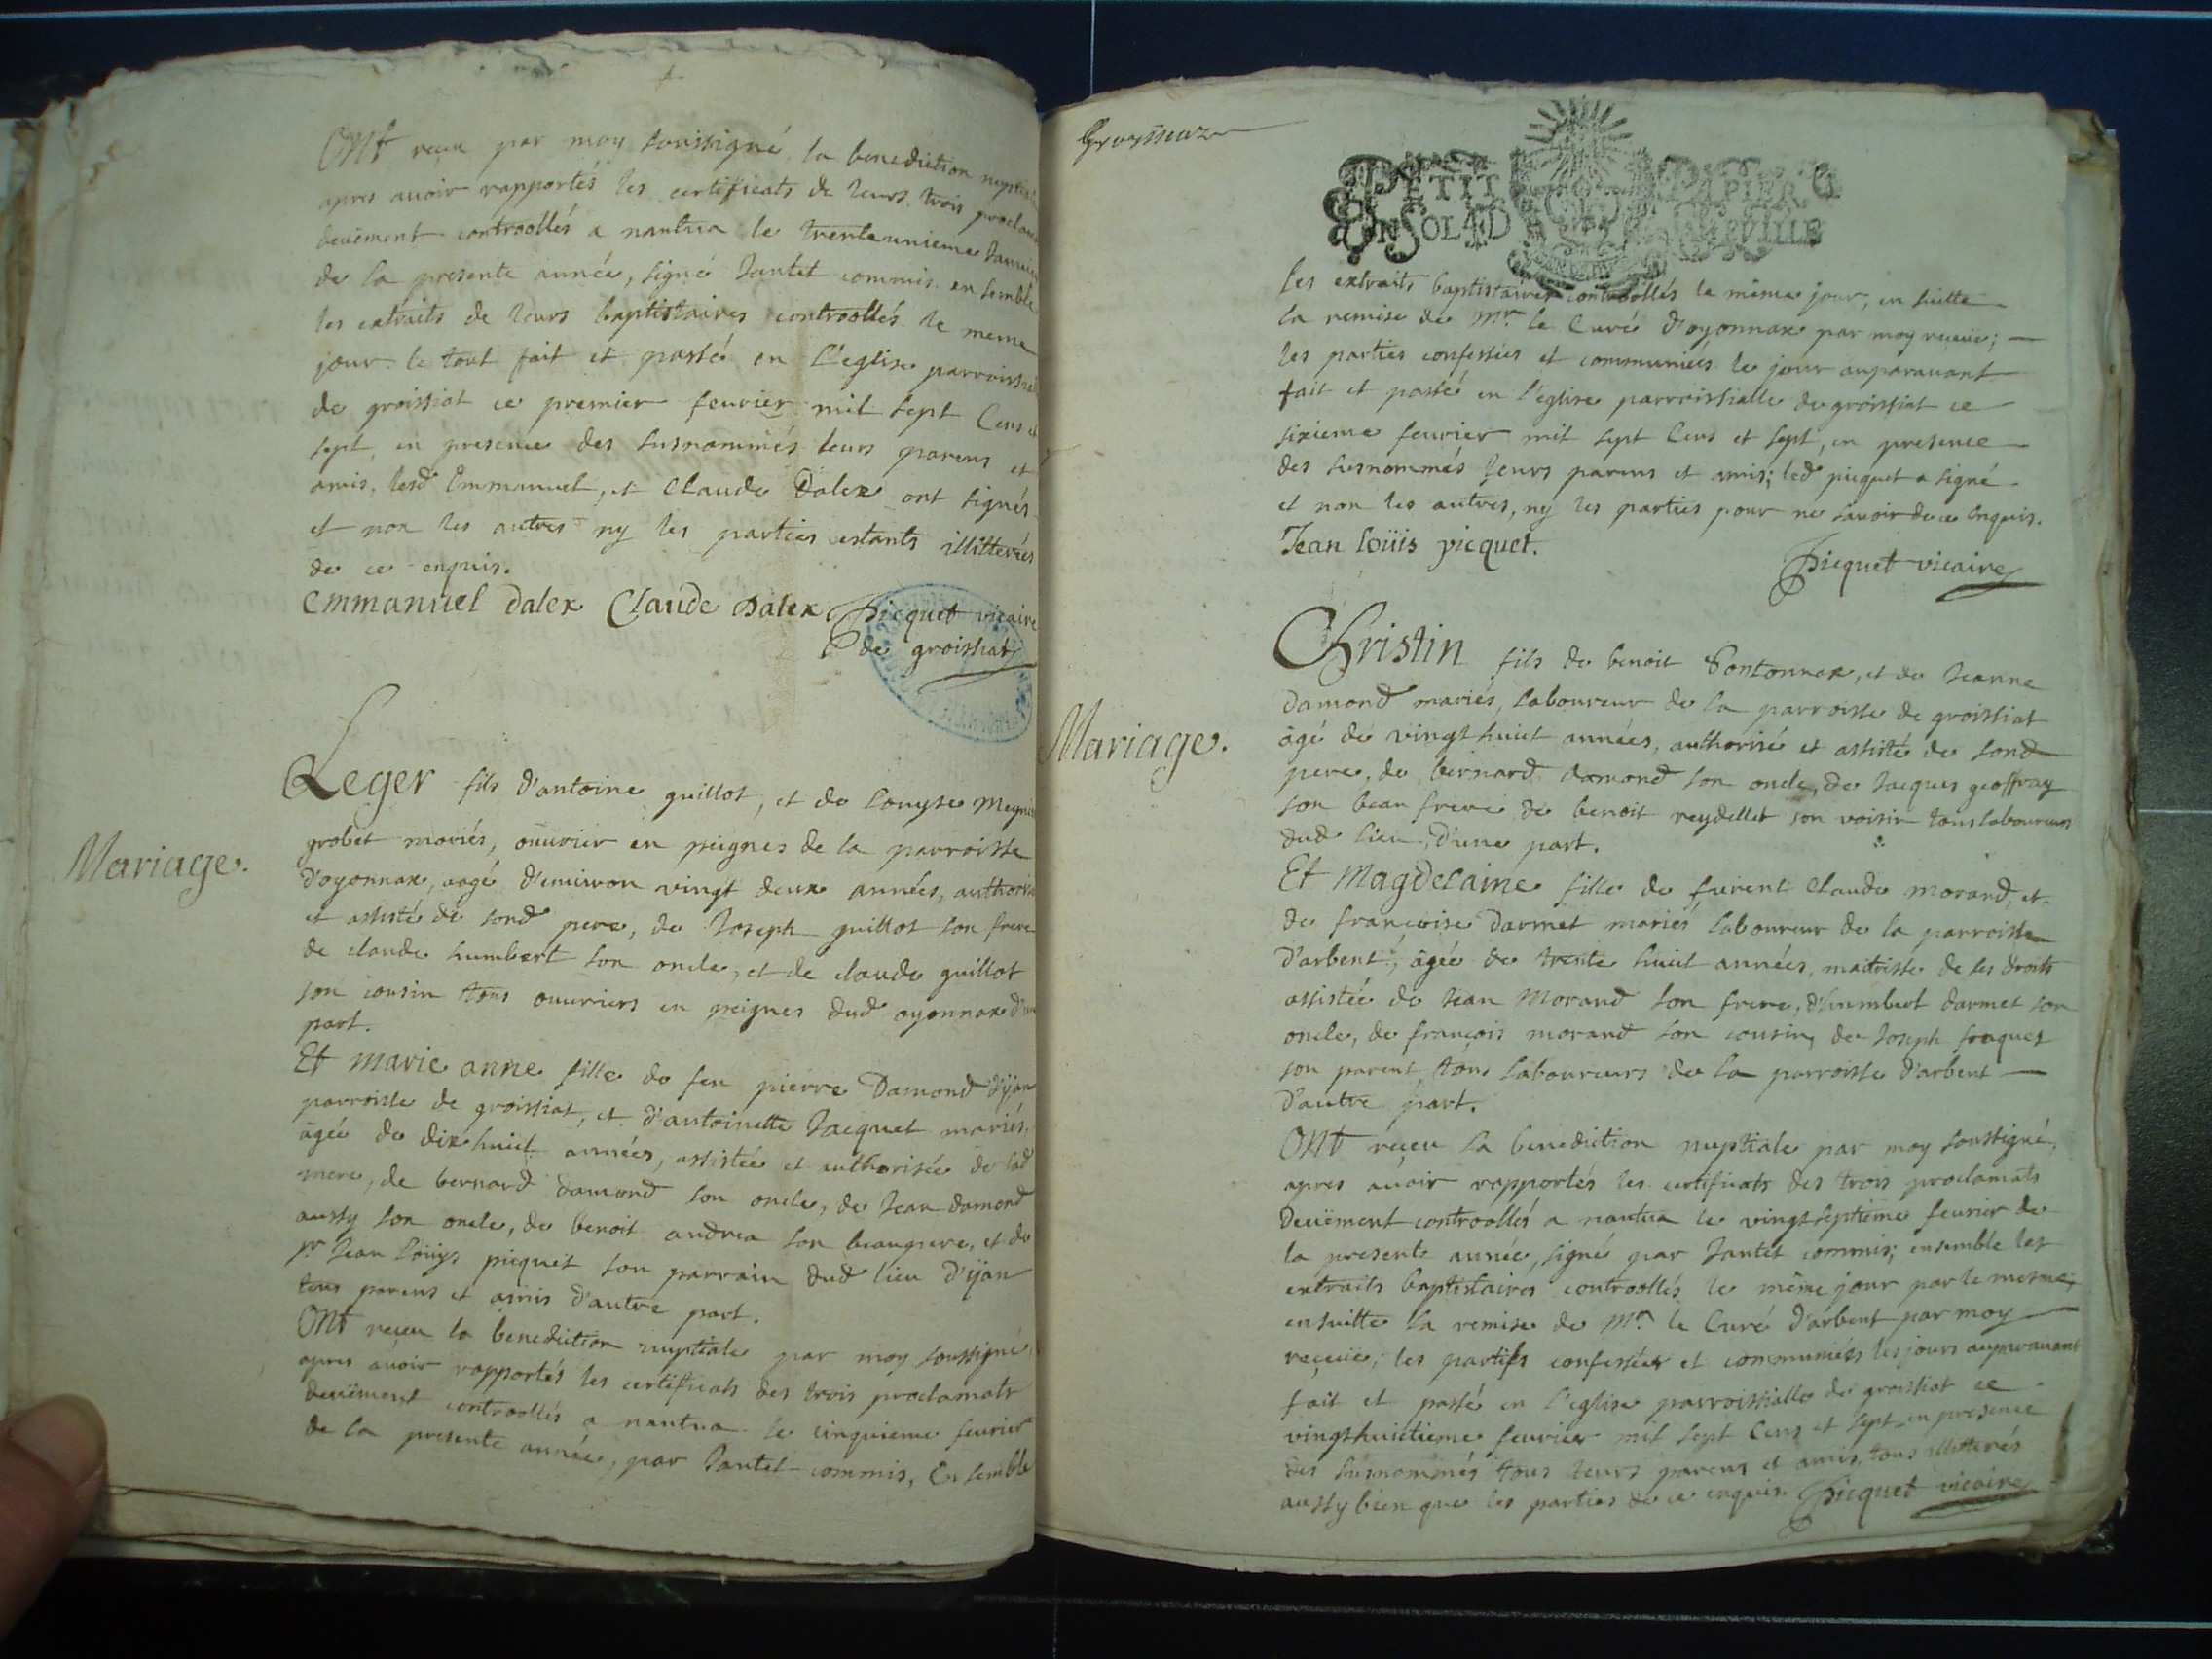 ONt receu par moy soussigné la benediction
apres auoir rapportés les certificats de leurs trois
deuëment controollés a nantua le trente unieme
de la presente année, signé Jantet commis ensemble
les extraits de leurs baptistaires controollés le meme
jour le tout fait et passé en l'eglise
de groissiat ce premier feurier mil sept Cens
sept, en presence des susnommés leurs parens et
amis, lesd Emmanuel, et Claude Dalex ont signés
et non les autres ny les parties estants illitterées
de ce enquis.
Emmanuel dalex Claude Dalex Picquet vicaire
de groissiat
Mariage.
Leger fils d'antoine guillot, et de Louyse
grobet mariés, ouurier en peignes de la parroisse
d'oyonnax, aagé d'enuiron vingt deux années,
et assisté de sond pere, de Joseph guillot son frere
de claude humbert son oncle, et de claude guillot
son cousin tous ouuriers en peignes dud oyonnax
part.
Et Marie anne fille de feu pierre Damond
parroisse de groissiat, et d'antoinette Jacquet mariés,
âgée de dix huict années, assistée et authorisée de lad
mere, de bernard damond son oncle, de Jean damond
aussy son oncle, de benoit andrea son beaupere, et de
sr Jean Loüys picquet son parrain dud lieu d'ijan
tous parens et amis d'autre part.
ONt receu la benediction nuptiale par moy soussigné,
apres auoir rapportés les certificats des trois proclamats
deuëment controollés a nantua le cinquieme feurier
de la presente année, par Jantet commis, Ensemble
PETIT PAPIER
EN SOL 4 D
les extraits baptistaires controollés le même jour, en suitte
la remise de Mr. le Curé d'oyonnax par moy receüe;
les parties confessées et communiées le jour auparauant
fait et passé en l'eglise parroissialle de groissiat ce
sixieme feurier mil sept Cens et sept, en presence
des susnommés leurs parens et amis; led picquet a signé
et non les autres, ny les parties pour ne sauoir de ce enquis.
Jean loüis picquet.
Picquet vicaire
Mariage.
Christin fils de benoit Pontonnex, et de Jeanne
damond mariés, laboureur de la parroisse de groissiat
âgé de vingt huict années, authorisé et assisté de sond
pere, de bernard damond son oncle, de Jacques geoffray
son beau frere de benoit reydellet son voisin tous laboureurs
dud lieu, d'une part.
Et Magdelaine fille de furent claude morand, et
de françoise Darmet mariés laboureur de la parroisse
d'arbent, âgée de trente huict années, maitresse de ses droits
assistée de Jean Morand son frere, d'humbert darmet son
oncle, de françois morand son cousin, de Joseph
son parent tous laboureurs de la parroisse d'arbent
d'autre part.
ONt reçeu la benediction nuptiale par moy soussigné,
apres auoir rapportés les certificats des trois proclamats
Deuëment controollés a nantua le vingt septieme feurier de
la presente année, signé par Jantet commis; ensemble les
extraits baptistaires controollés le même jour par le mesme,
ensuitte la remise de Mr. le Curé d'arbent par moy
reçeüe; les parties confessées et communiées les jours auparauant
fait et passé en l'eglise parroissialle de groissiat ce
vingt huictieme feurier mil sept Cens et sept en presence
des susnommés tous leurs parens et amis, tous illitterés
aussy bien que les parties de ce enquis. Picquet vicaire